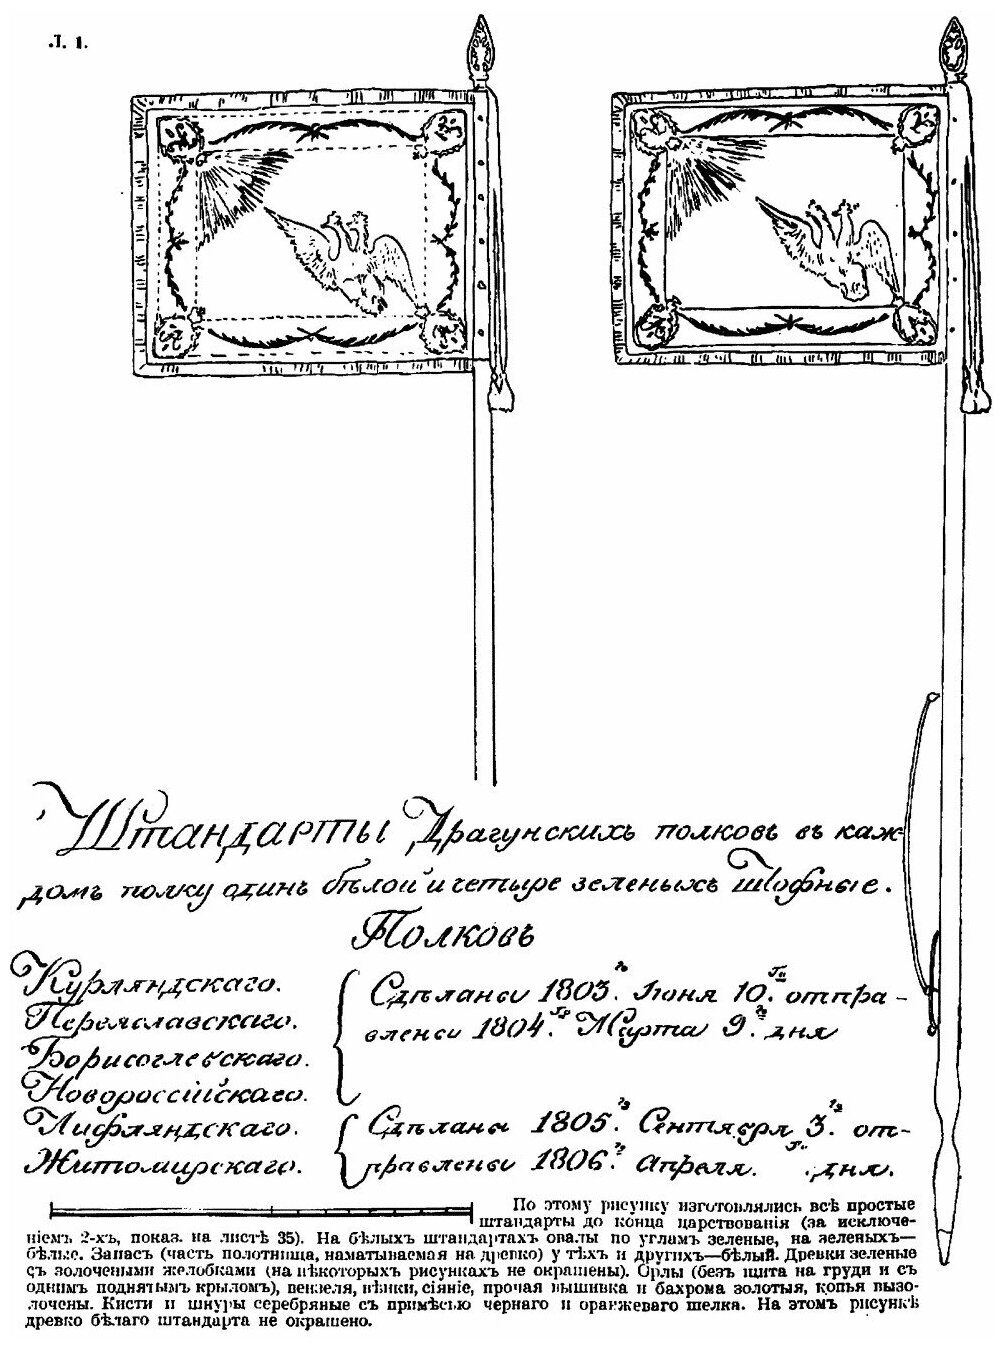 Л. 1.
Штандарты Драгунскихъ полковъ въ каж-
домъ полку одинъ бѣлой и четыре зеленыхъ Штофные.
Полковъ
Курляндскаго.
Переяславскаго.
Борисоглебскаго.
Новороссійскаго.
Сдѣланы 1803.го Іюня 10.го отпра-
влены 1804.го Марта 9.го дня
Лифляндскаго.
Житомирскаго.
Сдѣланы 1805.го Сентября 3.го от-
правлены 1806.го Апреля. дня.
По этому рисунку изготовлялись всѣ простые
штандарты до конца царствованія (за исключе-
ніемъ 2-хъ, показ. на листѣ 35). На бѣлыхъ штандартахъ овалы по угламъ зеленые, на зеленыхъ—
бѣлые. Запасъ (часть полотнища, наматываемая на древко) у тѣхъ и другихъ—бѣлый. Древки зеленые
съ золочеными желобками (на нѣкоторыхъ рисункахъ не окрашены). Орлы (безъ щита на груди и съ
однимъ поднятымъ крыломъ), вензеля, вѣнки, сіяніе, прочая вышивка и бахрома золотыя, копья вызо-
лочены. Кисти и шнуры серебряные съ примѣсью чернаго и оранжеваго шелка. На этомъ рисункѣ
древко бѣлаго штандарта не окрашено.